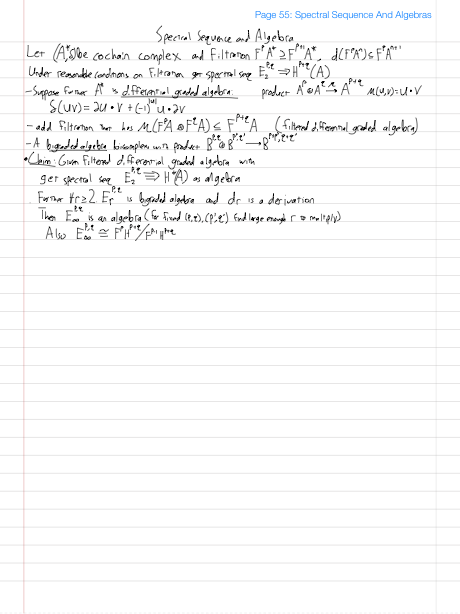 Page 55: Spectral Sequence And Algebras
Spectral Sequence and Algebra
Let (A*,δ) be cochain complex and filtration F^pA* ⊇ F^{p+1}A*, d(F^pA^n) ⊆ F^pA^{n+1}
Under reasonable conditions on filtration get spectral seq E_2^{p,q} ⇒ H^{p+q}(A)
- Suppose further A* is differential graded algebra: product A^p⊗A^q → A^{p+q} μ(u,v)=u·v
δ(uv) = δu·v + (-1)^{|u|} u·δv
- add filtration that has μ(F^pA ⊗ F^qA) ⊆ F^{p+q}A (filtered differential graded algebra)
- A bigraded algebra is complex with product B^{p,q} ⊗ B^{p',q'} → B^{p+p',q+q'}
• Claim: Given filtered differential graded algebra with
get spectral seq E_2^{p,q} ⇒ H*(A) as algebra
Further ∀r≥2 E_r^{p,q} is bigraded algebra and dr is a derivation
Then E_∞^{p,q} is an algebra (for fixed (p,q),(p',q') find large enough r to multiply)
Also E_∞^{p,q} ≅ F^pH^{p+q}/F^{p+1}H^{p+q}